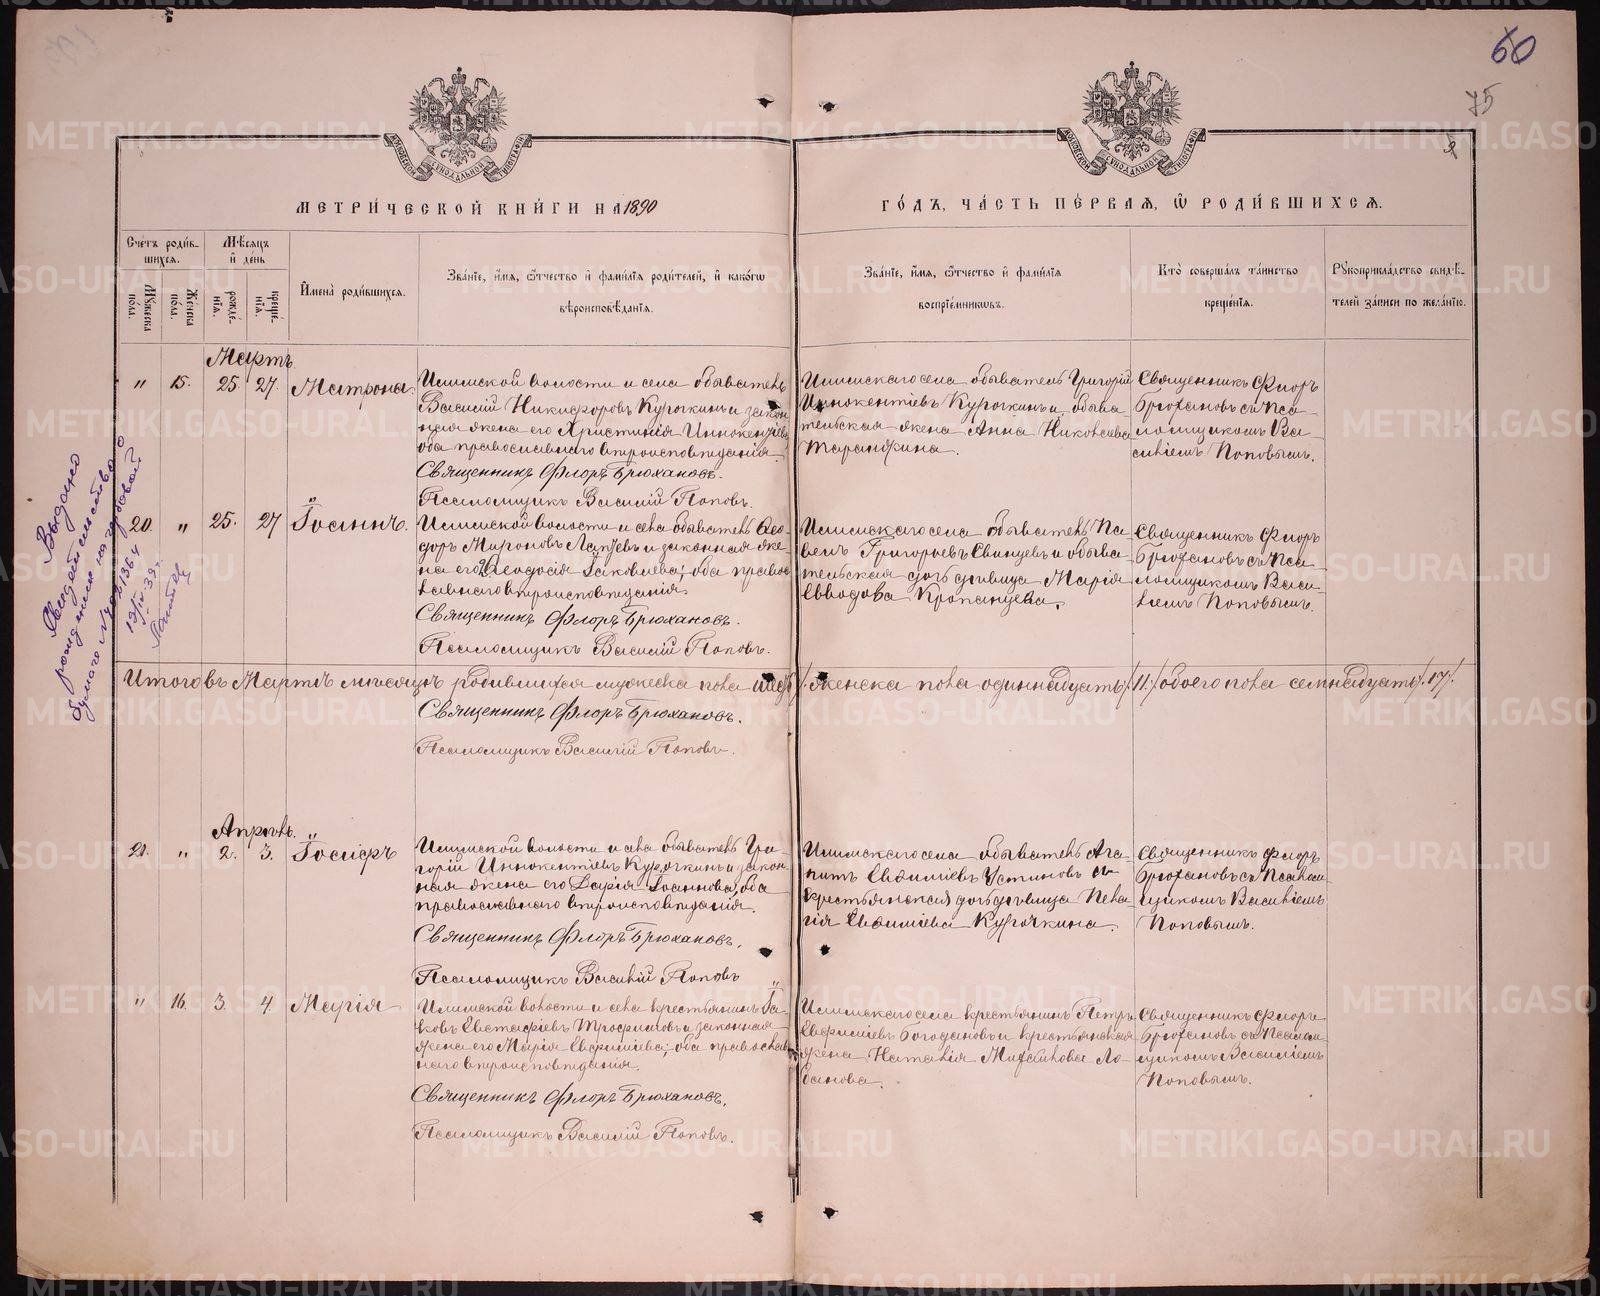 60
75
МОСКОВСКОЙ СѴНОДАЛЬНОЙ ТИПОГРАФІИ
МОСКОВСКОЙ СѴНОДАЛЬНОЙ ТИПОГРАФІИ
МЕТРИ́ЧЕСКОЙ КНИ́ГИ НА 1890
ГО́ДЪ, ЧА́СТЬ ПЕ́РВАЯ, Ѿ РОДИ́ВШИХСЯ.
Сче́тъ роди́в-
шихся.
Мѣ́сяцъ
и҆ де́нь
Мꙋжеска по́ла.
Же́нска по́ла.
рожде́нїѧ.
креще́нїѧ.
И҆мена̀ роди́вшихся.
Зва́нїе, и҆́мя, ѻ҆́тчество и҆ фами́лїя роди́телей, и҆ како́гѡ
вѣроисповѣ́данїя.
Зва́нїе, и҆́мя, ѻ҆́тчество и҆ фами́лїя
воспрїе́мникѡвъ.
Кто̀ соверша́лъ та́инство
креще́нїя.
Рꙋкоприкла́дство свидѣ́-
телей за́писи по жела́нїю.
Мартъ.
" 15. 25. 27. Матрона.
Илимской волости и села обыватель
Василій Никифоровъ Курочкинъ и закон
ная жена его Христинія Иннокентіева
оба православнаго вѣроисповѣданія.
Священникъ Флоръ Брюхановъ.
Псаломщикъ Василій Поповъ.
Илимскаго села обыватель Григорій
Иннокентіевъ Курочкинъ и обыва
тельская жена Анна Николаева
Священникъ Флоръ
Брюхановъ съ Пса-
ломщикомъ Ва-
силіемъ Поповымъ.
20. " 25. 27 Іоаннъ.
Илимской волости и села обыватель Ѳео-
доръ Мироновъ Лаптевъ и законная же-
на его Ѳеодосія Іаковлева; оба правос
лавнаго вѣроисповѣданія
Священникъ Флоръ Брюхановъ.
Псаломщикъ Василій Поповъ.
Илимскаго села обыватель Па-
велъ Григорьевъ Свинцевъ и обыва-
тельская дочь дѣвица Марія
Священникъ Флоръ
Брюхановъ съ Пса-
ломщикомъ Васи-
ліемъ Поповымъ.
Выдано
Свидетельство
о рождении на гербовой
бумаге № 021364
Итого въ Мартѣ мѣсяцѣ родившихся мужеска пола шесть /6/ женска пола одиннадцать /11./ обоего пола семнадцать /17/.
Священникъ Флоръ Брюхановъ.
Псаломщикъ Василій Поповъ.
Апрѣль.
21. " 2. 3. Іосифъ
Илимской волости и села обыватель Гри-
горій Иннокентіевъ Курочкинъ и закон-
ная жена его Дарія Іоаннова, оба
православнаго вѣроисповѣданія.
Священникъ Флоръ Брюхановъ.
Псаломщикъ Василій Поповъ
Илимскаго села обыватель Ага-
питъ Евѳиміевъ Устиновъ и
крестьянская дочь дѣвица Пела-
гія Евѳиміева Курочкина.
Священникъ Флоръ
Брюхановъ съ Псалом
щикомъ Василіемъ
Поповымъ.
" 16. 3. 4. Марія
Илимской волости и села крестьянинъ Іа-
ковъ Евстафіевъ Трофимовъ и законная
жена его Марія Евфиміева; оба православ
наго вѣроисповѣданія.
Священникъ Флоръ Брюхановъ.
Псаломщикъ Василій Поповъ.
Илимскаго села крестьянинъ Петръ
Евфиміевъ Богодановъ и крестьянская
жена Наталія Михаилова Ло-
банова.
Священникъ Флоръ
Брюхановъ съ Псалом
щикомъ Василіемъ
Поповымъ.
METRIKI.GASO-URAL.RU